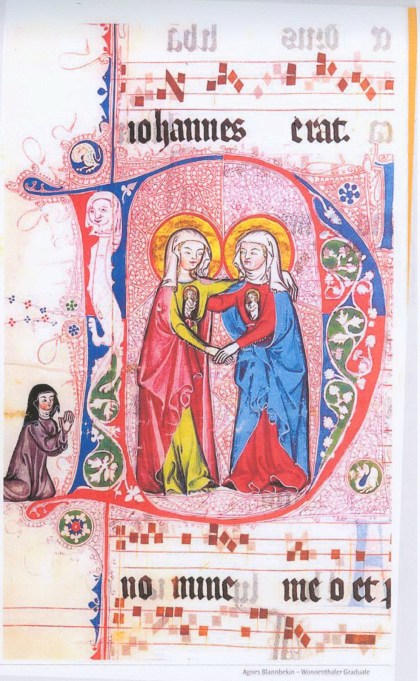 iohannes erat.
no mine me o et
Agnes Blannbekin – Wonnenthaler Graduale